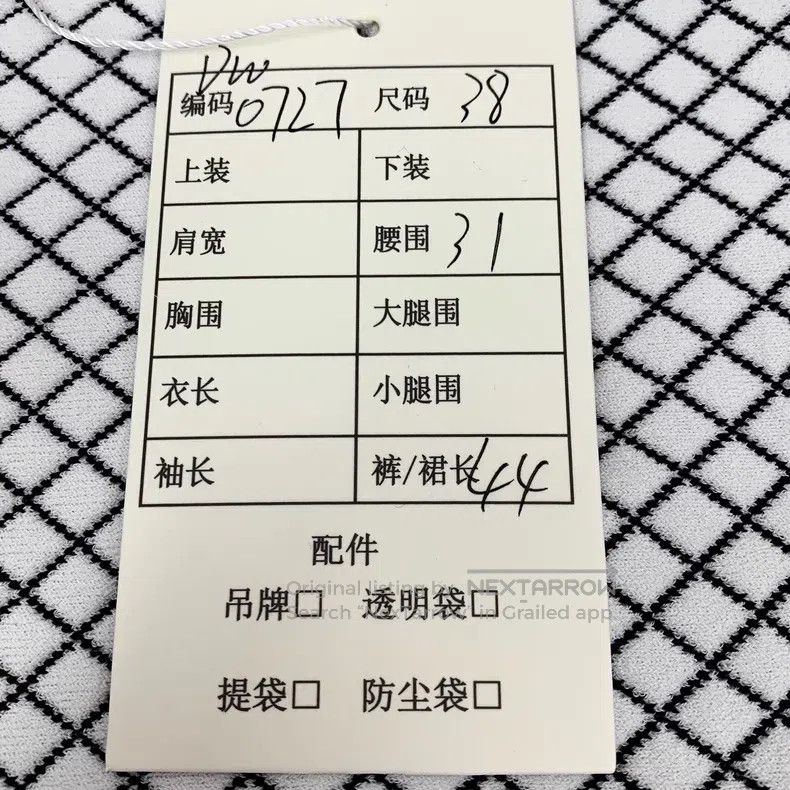 DW
编码 0727 尺码 38
上装 下装
肩宽 腰围 31
胸围 大腿围
衣长 小腿围
袖长 裤/裙长 44
配件
Original listing by NEXTARROW
吊牌□ 透明袋□
Search "Nextarrow" in Grailed app
提袋□ 防尘袋□